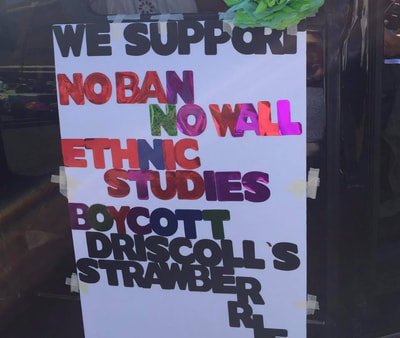 WE SUPPORT
NO BAN
NO WALL
ETHNIC
STUDIES
BOYCOTT
DRISCOLL`S
STRAWBER